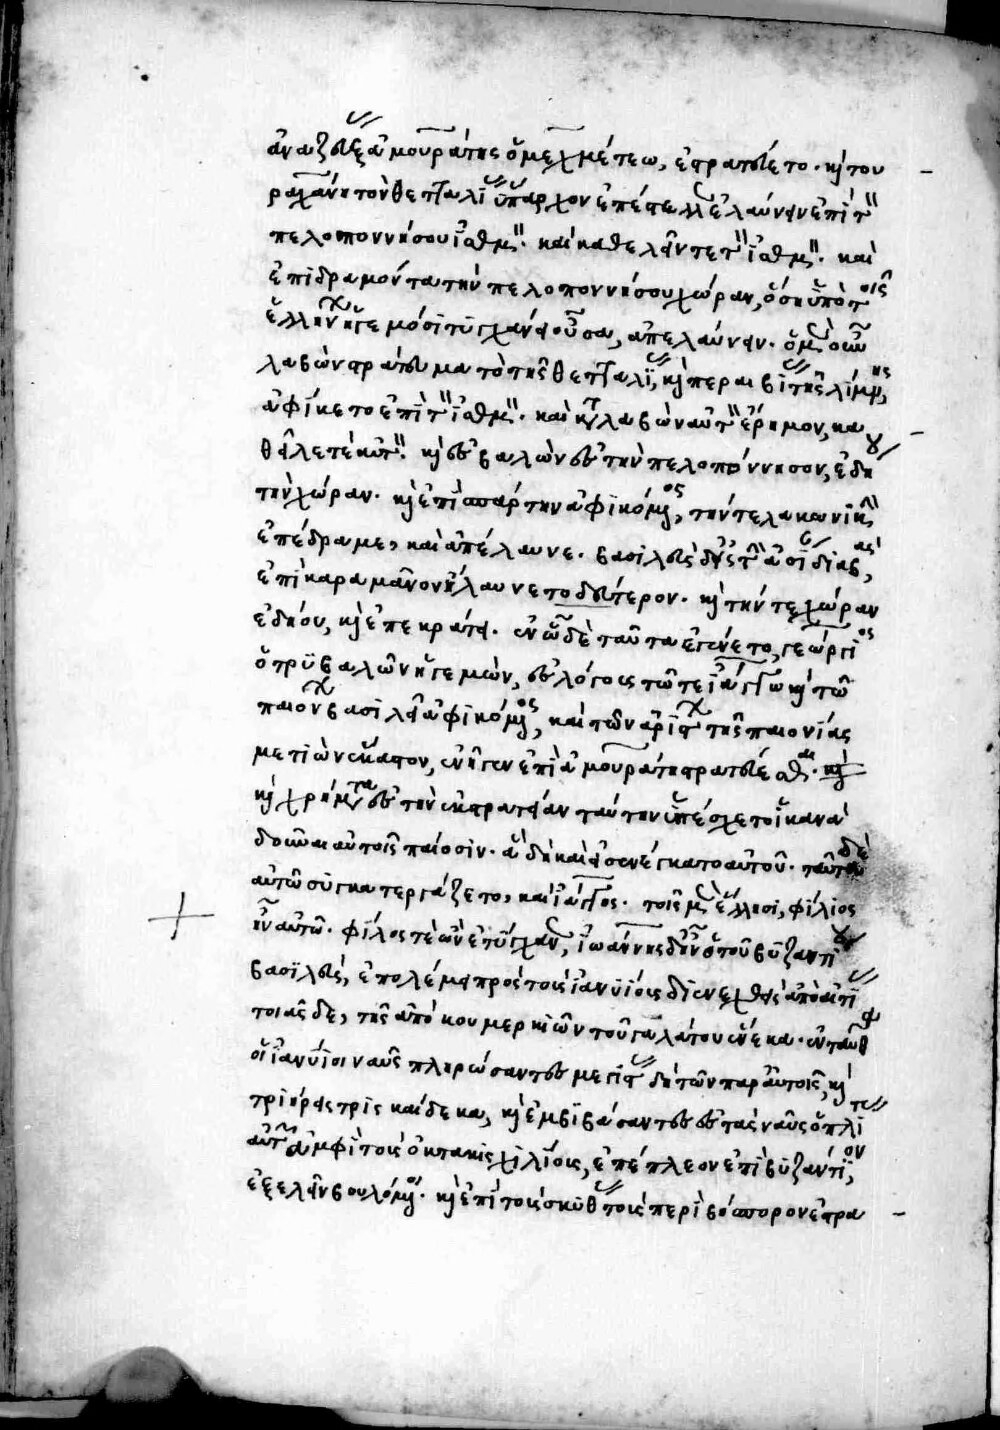 ἀναζεύξας ἀμουράτης ὁ μεχμέτεω, ἐστρατεύετο. καὶ του
ραχάνη τὸν θετταλίας ὕπαρχον ἐπέστελλεν ἐλαύνειν ἐπὶ τὸν
πελοποννήσου ἰσθμόν. καὶ καθελεῖν τε τὸν ἰσθμόν. καὶ
ἐπιδραμόντα τὴν πελοποννήσου χώραν, ὅση ὑπὸ τοῖς
ἕλλησιν ἡγεμόσι τυγχάνει οὖσα, ἀπελαύνειν. ὁ μὲν οὖν
λαβὼν στράτευμα τὸ τῆς θετταλίας, καὶ περαιβίας τῆς λίμνης,
ἀφίκετο ἐπὶ τὸν ἰσθμόν. καὶ καταλαβὼν αὐτὸν ἔρημον, κα
θεῖλέ τε αὐτόν. καὶ ἐσβαλὼν ἐς τὴν πελοπόννησον, ἐδῄου
τὴν χώραν. καὶ ἐπὶ σπάρτην ἀφικόμενος, τήν τε λακωνικὴν
ἐπέδραμε, καὶ ἀπέλαυνε. βασιλεὺς δὲ ἐς τὴν ἀσίαν διαβὰς,
ἐπὶ καραμᾶνον ἤλαυνε τὸ δεύτερον. καὶ τήν τε χώραν
ἐδῄου, καὶ ἐπεκράτει. ἐν ᾧ δὲ ταῦτα ἐγένετο, γεώργιος
ὁ τριβαλῶν ἡγεμὼν, ἐς λόγους τῷ τε ἰάγγῳ καὶ τῷ
παιόνων βασιλεῖ ἀφικόμενος, καὶ τῶν ἀρίστων τῆς παιονίας
μετιὼν ἕκαστον, ἐνῆγεν ἐπὶ ἀμουράτη στρατεύεσθαι. καὶ
καὶ χρήματα ἐς τὴν ἐκστρατείαν ταύτην ὑπέσχετο ἱκανὰ
δοῦναι αὐτοῖς παίοσιν. ἃ δὴ καὶ εἰσενέγκατο αὐτοῦ. ταῦτα δὲ
αὐτῷ συγκατεργάζετο, καὶ ἰάγγος. τοῖς μὲν ἕλλησι, φίλιος
ἦν αὐτῷ. φίλος τε ὢν ἐτύγχανεν, ἰωάννης δὲ ἦν ὁ τοῦ βυζαντίου
βασιλεὺς, ἐπολέμει πρὸς τοὺς ἰανυΐους διενεχθεὶς ἀπὸ αἰτίας
τοιᾶσδε, τῆς ἀπὸ κουμερκίων τοῦ γαλάτου ἕνεκα. ἐνταῦθα
οἱ ἰανύϊοι ναῦς πληρώσαντες μεγίστας δὴ τῶν παρ' αὐτοῖς, καὶ
τριήρεις τρισκαίδεκα, καὶ ἐμβιβάσαντες ἐς τὰς ναῦς ὁπλίτας
αὐτῶν ἀμφὶ τοὺς ὀκτακισχιλίους, ἐπέπλεον ἐπὶ βυζάντιον,
ἐξελεῖν βουλόμενοι. καὶ ἐπὶ τοὺς σκύθας τοὺς περὶ βόσπορον ἐστρα